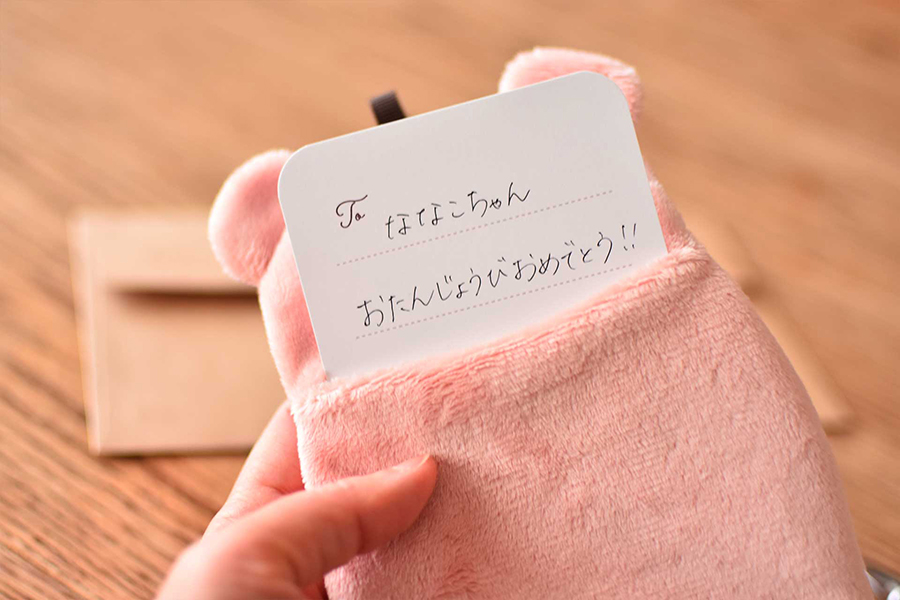 To ななこちゃん
おたんじょうびおめでとう!!